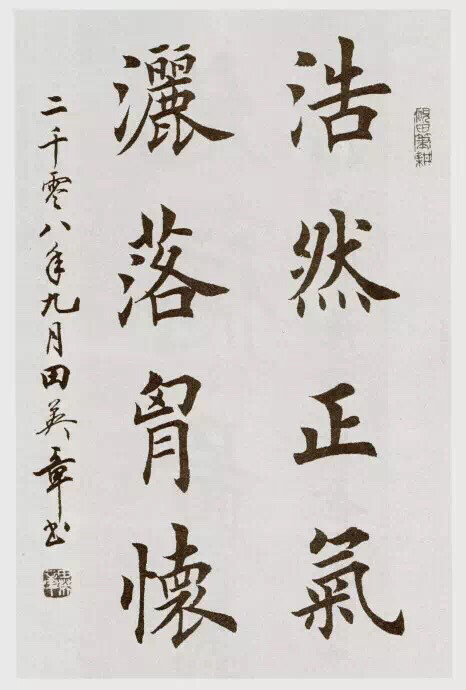 硯田筆耕
浩然正氣
灑落胷懷
二千零八年九月田英章书